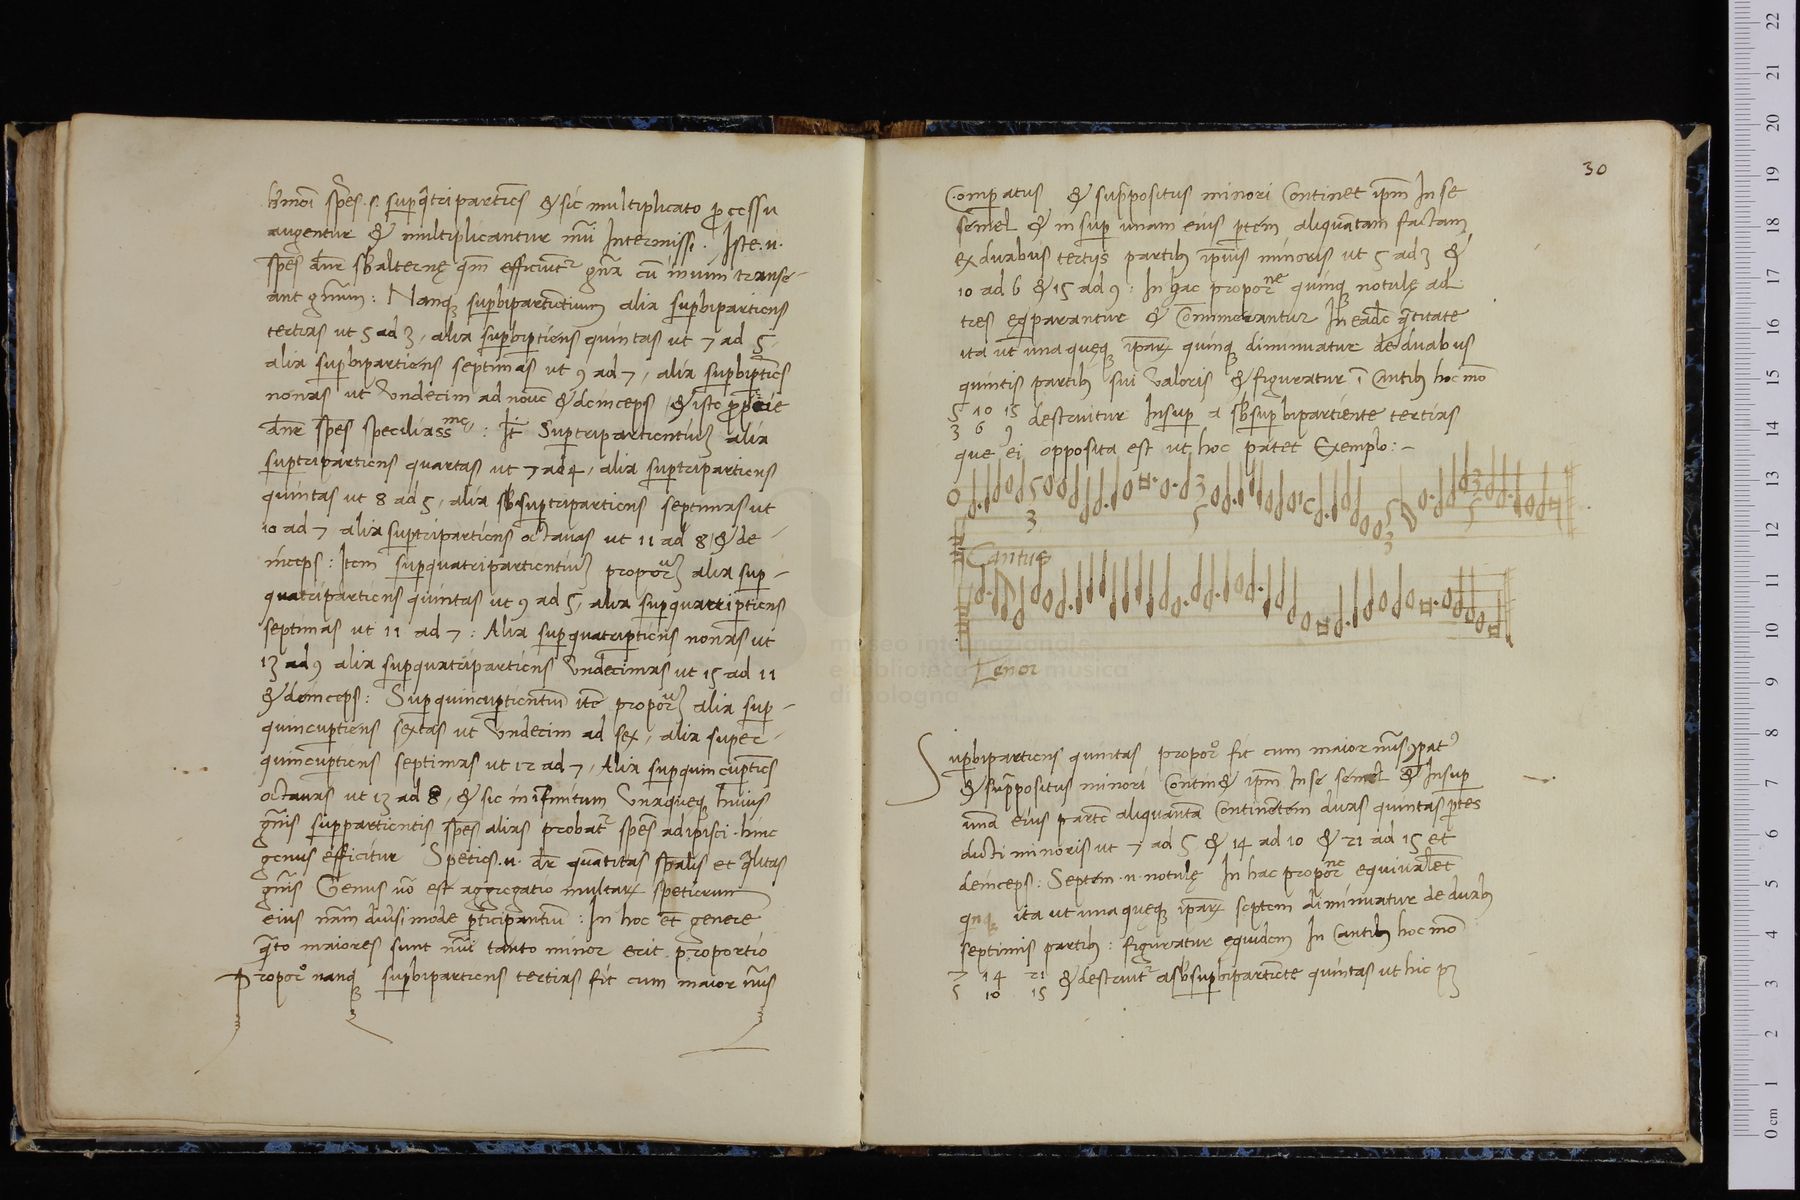 hmōi spēs .s. supq̄tripartiēs & sic multiplicato ꝓcessu
augentur & multiplicantur nūi Intermissi. Iste .n.
spēs dn̄r sbalternę qm̄ efficiūtr gn̄a cū in uim transe-
ant gn̄um: Nanqȝ supbipartiētium alia supbipartiens
tertias ut 5 ad 3, alia supbiptiens quintas ut 7 ad 5,
alia supbipartiens septimas ut 9 ad 7, alia supbiptiēs
nonas ut Undecim ad nouē & deinceps / & iste
dn̄r spēs specialissme: It̄ Suptripartientiuȝ alia
suptripartiens quartas ut 7 ad 4, alia suptripartiens
quintas ut 8 ad 5, alia suptripartiens septimas ut
10 ad 7 alia suptripartiens octauas ut 11 ad 8 / & de-
inceps: Item supquatripartientiuȝ propor alia sup-
quatripartiens quintas ut 9 ad 5, alia supquatriptiens
septimas ut 11 ad 7: Alia supquatriptiens nonas ut
13 ad 9 alia supquatripartiens Undecimas ut 15 ad 11
& deinceps: Supquincuptientiū itē propor alia sup-
quincuptiens sextas ut Undecim ad sex, alia super-
quincuptiens septimas ut 12 ad 7, Alia supquincuptiēs
octauas ut 13 ad 8, & sic in īfinitum Unaqueqȝ huius
gn̄is suppartientis spēs alias probatr spēs adipisci. hinc
genus efficitur Speties .n. dr̄ quātitas spālis et q̄litas
gn̄is Genus uō est aggregatio multaꝝ spetierum
eius nām diuisimode pticipantiū: In hoc et genere
q̄to maiores sunt nūi tanto minor erit proportio
Propor nanqȝ supbipartiens tertias fit cum maior nūs
30
Compatus & suppositus minori Continet ipm̄ In se
semel & in sup unam eius ptem aliquātam factam
ex duabus tertijs partibȝ ipsius minoris ut 5 ad 3 &
10 ad 6 & 15 ad 9: In hac proporne quinqȝ notulę ad
tres eqparantur & Commorantur In eadē q̄titate
ita ut una quęqȝ ipaꝝ quinqȝ diminuatur de duabus
quintis partibȝ sui Valoris & figuratur ī Cantibȝ hoc mō
5 10 15 destruitur Insup a sbsupbipartiente tertias
3 6 9
que ei opposita est ut hoc patet Exemplo: -
3 5 3 5
Cantus
Tenor
Supbipartiens quintas propor fit cum maior nūs ꝯpatꝰ
& suppositus minori Contin& ipm̄ In se semel & Insup
unā eius partē aliquantā Continētem duas quintas ptes
dicti minoris ut 7 ad 5 & 14 ad 10 & 21 ad 15 et
deinceps: Septem .n. notulę In hac proporne equiualēt
qnqȝ ita ut una queqȝ ipaꝝ septem diminuatur de duabȝ
septimis partibȝ: figuratur equidem In Cantibȝ hoc mō
7 14 21 & destruitr a sbsupbipartiēte quintas ut hic pȝ
5 10 15